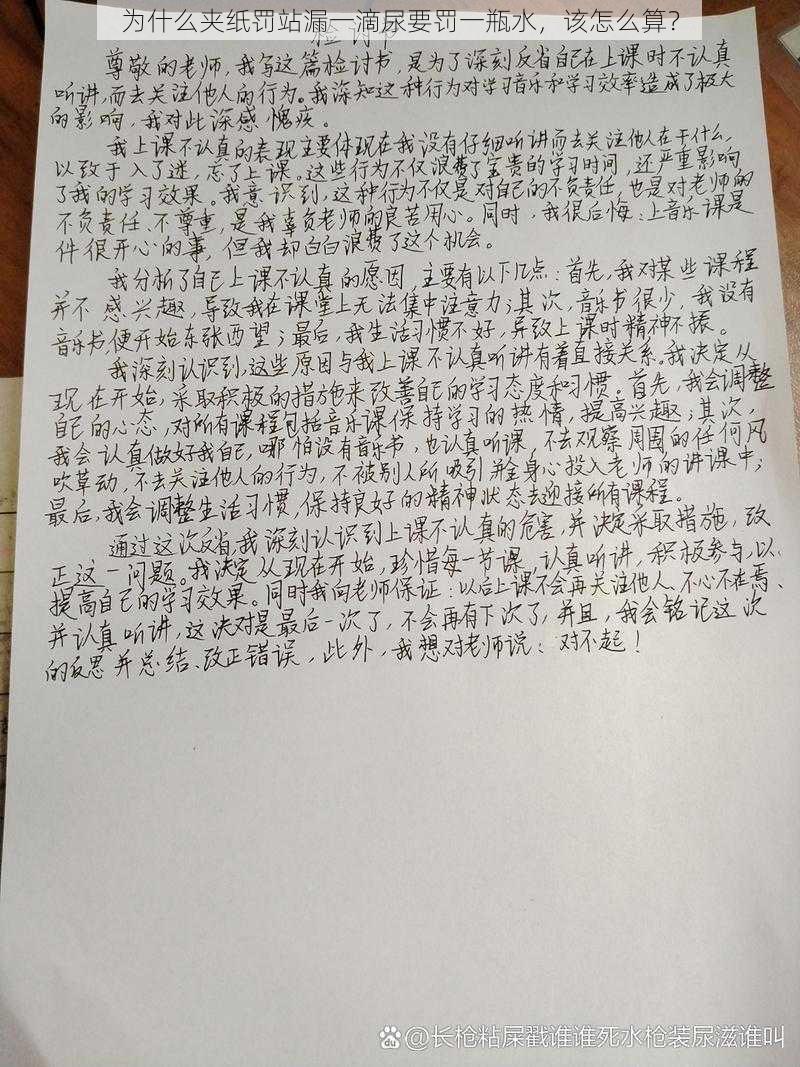 为什么夹纸罚站漏一滴尿要罚一瓶水，该怎么算？
检讨书
尊敬的老师，我写这篇检讨书，是为了深刻反省自己在上课时不认真
听讲，而去关注他人的行为。我深知这种行为对学习音乐和学习效率造成了极大
的影响，我对此深感愧疚。
我上课不认真的表现主要体现在我没有仔细听讲而去关注他人在干什么，
以致于入了迷，忘了上课。这些行为不仅浪费了宝贵的学习时间，还严重影响
了我的学习效果。我意识到，这种行为不仅是对自己的不负责任，也是对老师的
不负责任、不尊重，是我辜负老师的良苦用心。同时，我很后悔：上音乐课是
件很开心的事，但我却白白浪费了这个机会。
我分析了自己上课不认真的原因，主要有以下几点：首先，我对某些课程
并不感兴趣，导致我在课堂上无法集中注意力；其次，音乐书很少，我没有
音乐书，便开始东张西望；最后，我生活习惯不好，导致上课时精神不振。
我深刻认识到，这些原因与我上课不认真听讲有着直接关系。我决定从
现在开始，采取积极的措施来改善自己的学习态度和习惯。首先，我会调整
自己的心态，对所有课程包括音乐课保持学习的热情，提高兴趣；其次，
我会认真做好我自己，哪怕没有音乐书，也认真听课，不去观察周围的任何风
吹草动，不去关注他人的行为，不被别人所吸引并全身心投入老师的讲课中；
最后，我会调整生活习惯，保持良好的精神状态去迎接所有课程。
通过这次反省，我深刻认识到上课不认真的危害，并决定采取措施，改
正这一问题。我决定从现在开始，珍惜每一节课，认真听讲，积极参与，以
提高自己的学习效果。同时我向老师保证：以后上课不会再关注他人、不心不在焉、
并认真听讲，这决对是最后一次了，不会再有下次了，并且，我会铭记这次
的反思并总结、改正错误，此外，我想对老师说：对不起！
@长枪粘屎戳谁谁死水枪装尿滋谁叫